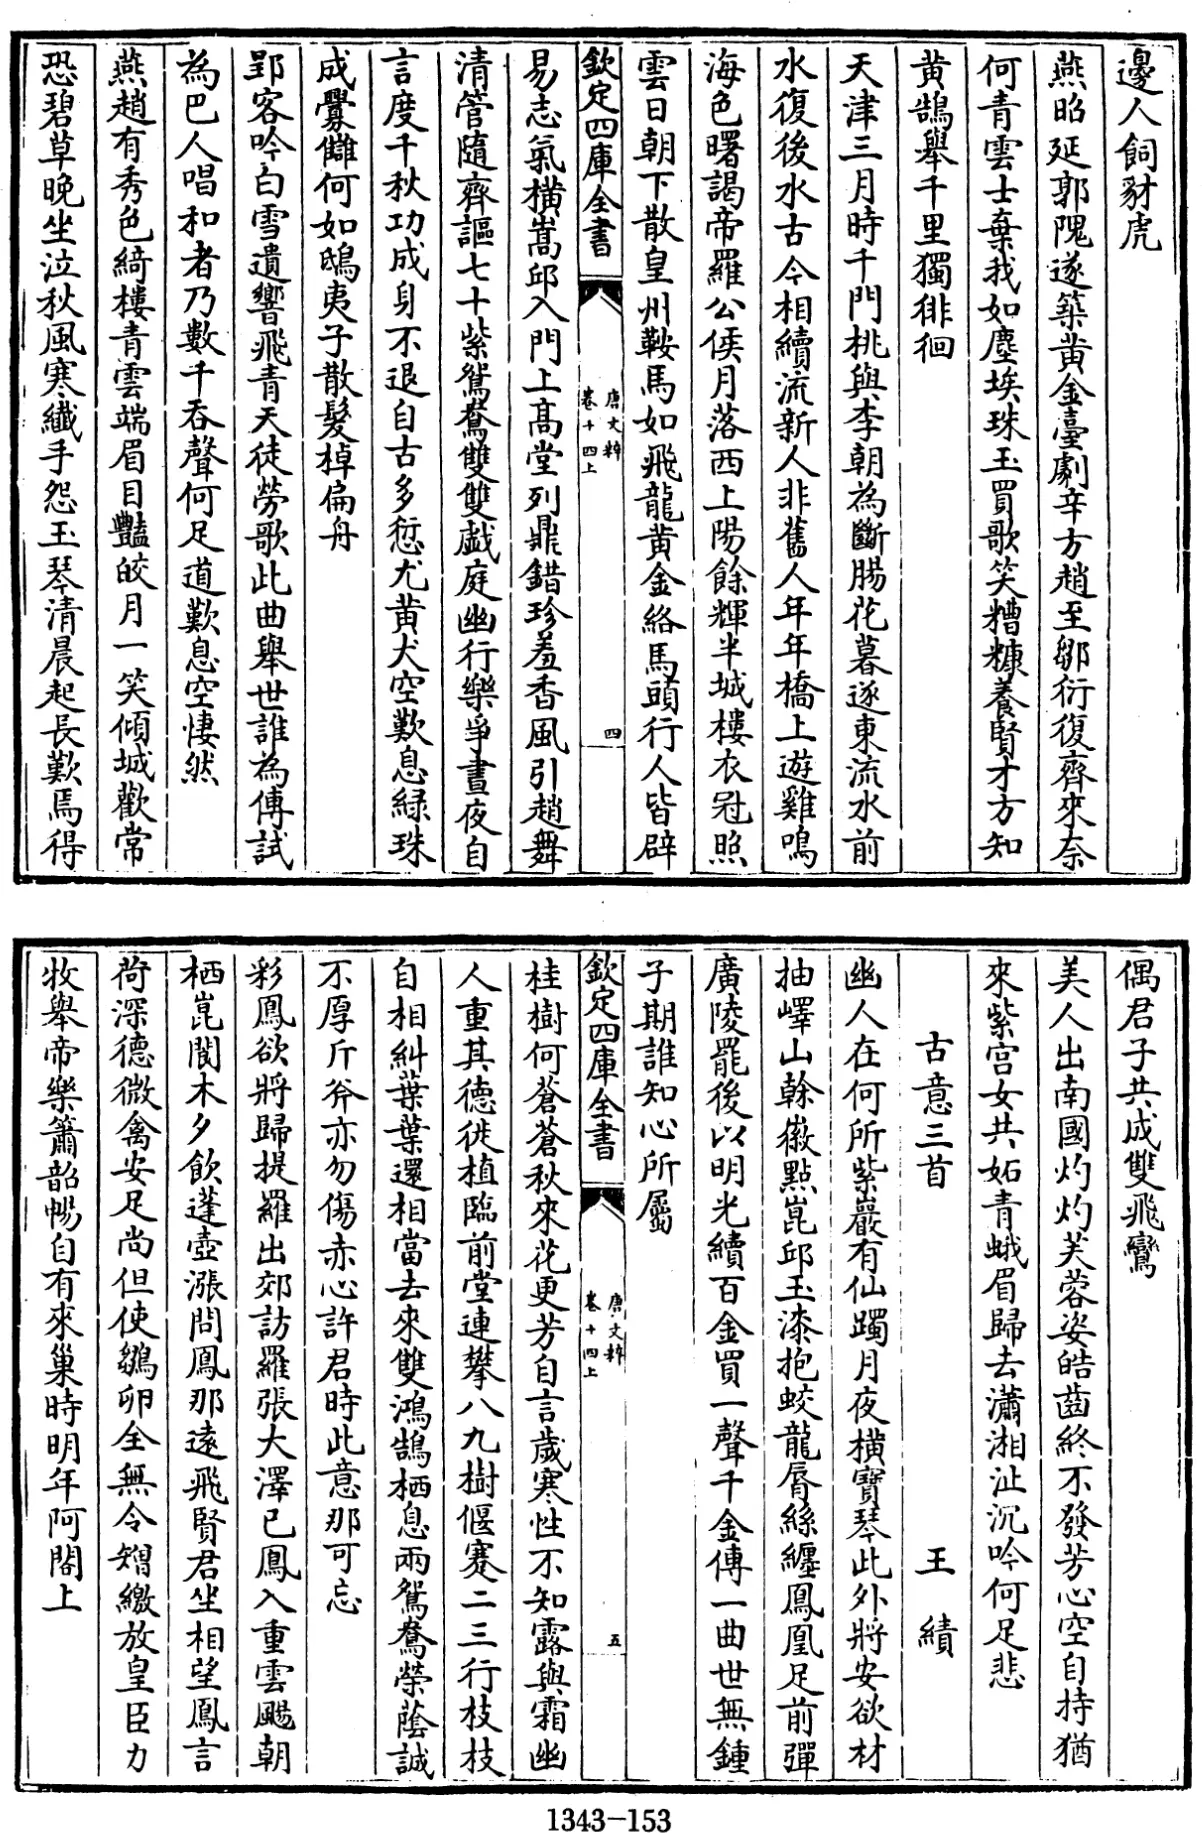 邊人飼豺虎
燕昭延郭隗遂築黄金臺劇辛方趙至鄒衍復齊來奈
何青雲士棄我如塵埃珠玉買歌笑糟糠養賢才方知
黄鵠舉千里獨徘徊
天津三月時千門桃與李朝為斷腸花暮逐東流水前
水復後水古今相續流新人非舊人年年橋上遊雞鳴
海色曙謁帝羅公侯月落西上陽餘輝半城樓衣冠照
雲日朝下散皇州鞍馬如飛龍黄金絡馬頭行人皆辟
欽定四庫全書
唐文粹
卷十四上
四
易志氣横嵩邱入門上髙堂列鼎錯珍羞香風引趙舞
清管隨齊謳七十紫鴛鴦雙雙戯庭幽行樂爭晝夜自
言度千秋功成身不退自古多愆尤黄犬空歎息緑珠
成釁讎何如鴟夷子散髮棹扁舟
郢客吟白雪遺響飛青天徒勞歌此曲舉世誰為傳試
為巴人唱和者乃數千吞聲何足道歎息空悽然
燕趙有秀色綺樓青雲端眉目豔皎月一笑傾城歡常
恐碧草晚坐泣秋風寒纖手怨玉琴清晨起長歎焉得
偶君子共成雙飛鸞
美人出南國灼灼芙蓉姿皓齒終不發芳心空自持猶
來紫宫女共妬青蛾眉歸去瀟湘沚沉吟何足悲
古意三首 王績
幽人在何所紫巖有仙躅月夜横寶琴此外將安欲材
抽嶧山榦徽點崑邱玉漆抱蛟龍脣絲纒鳳凰足前彈
廣陵罷後以明光續百金買一聲千金傳一曲世無鍾
子期誰知心所屬
欽定四庫全書
唐文粹
卷十四上
五
桂樹何蒼蒼秋來花更芳自言歲寒性不知露與霜幽
人重其德徙植臨前堂連攀八九樹偃蹇二三行枝枝
自相糾葉葉還相當去來雙鴻鵠栖息兩鴛鴦榮蔭誠
不厚斤斧亦勿傷赤心許君時此意那可忘
彩鳳欲將歸提羅出郊訪羅張大澤已鳳入重雲颺朝
栖崑閬木夕飲蓬壺漲問鳳那逺飛賢君坐相望鳳言
荷深德微禽安足尚但使鶵卵全無令矰繳放皇臣力
牧舉帝樂簫韶暢自有來巢時明年阿閣上
1343-153